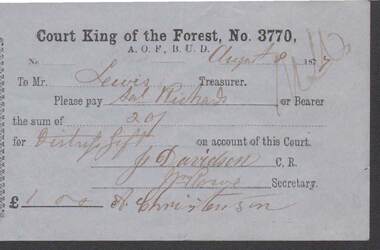 Court King of the Forest, No. 3770,
A. O. F., B. U. D.
No August 8 187
To Mr. Lewis Treasurer.
Please pay Richards or Bearer
the sum of 20/
for Distress Gift on account of this Court.
J Davidson C. R.
Secretary.
£ 1 0 0 A Christenson